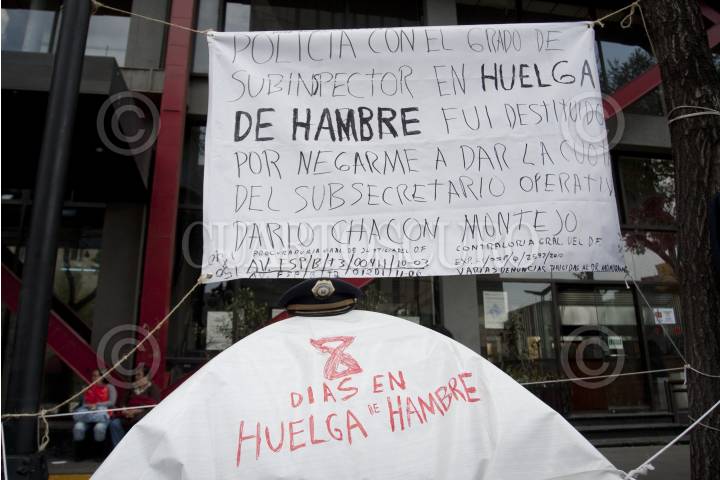 POLICIA CON EL GRADO DE
SUBINSPECTOR EN HUELGA
DE HAMBRE FUI DESTITUIDO
POR NEGARME A DAR LA CUOTA
DEL SUBSECRETARIO OPERATIV
DARIO CHACON MONTEJO
PROCURADURIA GRAL DE JUSTICIA DEL D.F
CONTRALORIA GRAL DEL DF
VARIAS DENUNCIAS DIRIGIDAS AL DR.
8
DIAS EN
HUELGA DE HAMBRE